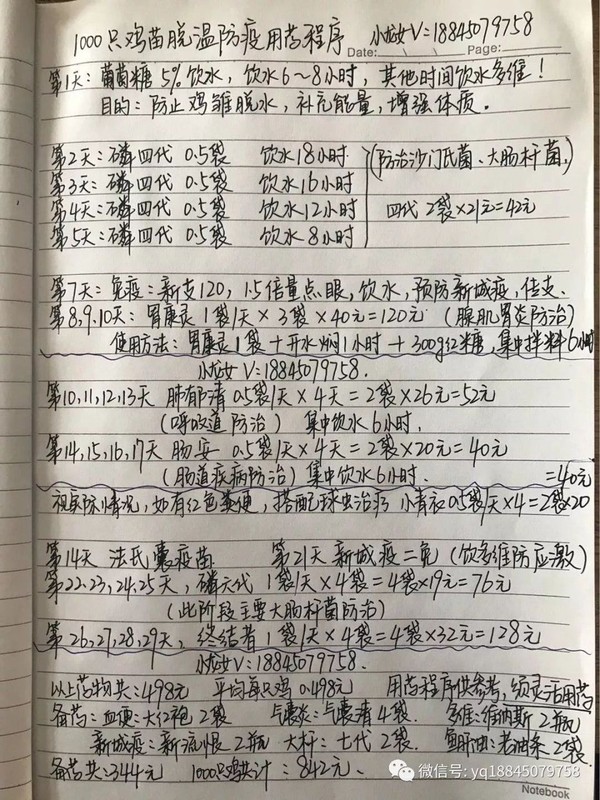 1000只鸡苗脱温防疫用药程序 小龙女V=18845079758
Date: Page:
第1天:葡萄糖5%饮水,饮水6~8小时,其他时间饮水多维!
目的:防止鸡雏脱水,补充能量,增强体质.
第2天:磷四代 0.5袋 饮水18小时 (防治沙门氏菌、大肠杆菌,)
第3天:磷四代 0.5袋 饮水16小时
第4天:磷四代 0.5袋 饮水12小时 四代 2袋×21元=42元
第5天:磷四代 0.5袋 饮水8小时
第7天:免疫:新支120,1.5倍量点眼,饮水,预防新城疫,传支.
第8,9,10天:胃康灵 1袋/天×3袋×40元=120元 (腺肌胃炎防治)
使用方法:胃康灵1袋+开水焖1小时+300g红糖,集中拌料6小时
小龙女V=18845079758.
第10,11,12,13天 肺郁清 0.5袋/天×4天=2袋×26元=52元
(呼吸道防治) 集中饮水6小时.
第14,15,16,17天 肠安 0.5袋/天×4天=2袋×20元=40元
(肠道疾病防治)集中饮水6小时. =40元
视实际情况,如有红色粪便,搭配球虫治疗 小青衣0.5袋/天×4=2袋×20
第14天 法氏囊疫苗 第21天 新城疫二免(饮多维防应激)
第22,23,24,25天,磷六代 1袋/天×4袋=4袋×19元=76元
(此阶段主要大肠杆菌防治)
第26,27,28,29天,终结者 1袋/天×4袋=4袋×32元=128元
小龙女V=18845079758.
以上药物共:498元 平均每只鸡0.498元 用药程序供参考,须灵活用药
备药:血便:大红袍2袋 气囊炎:气囊清4袋. 多维:维纳斯2瓶
新城疫:新流恨2瓶 大杆:七代2袋. 鱼肝油:老油条2袋.
备药共:344元 1000只鸡共计:842元.
微信号: yq18845079758
Notebook